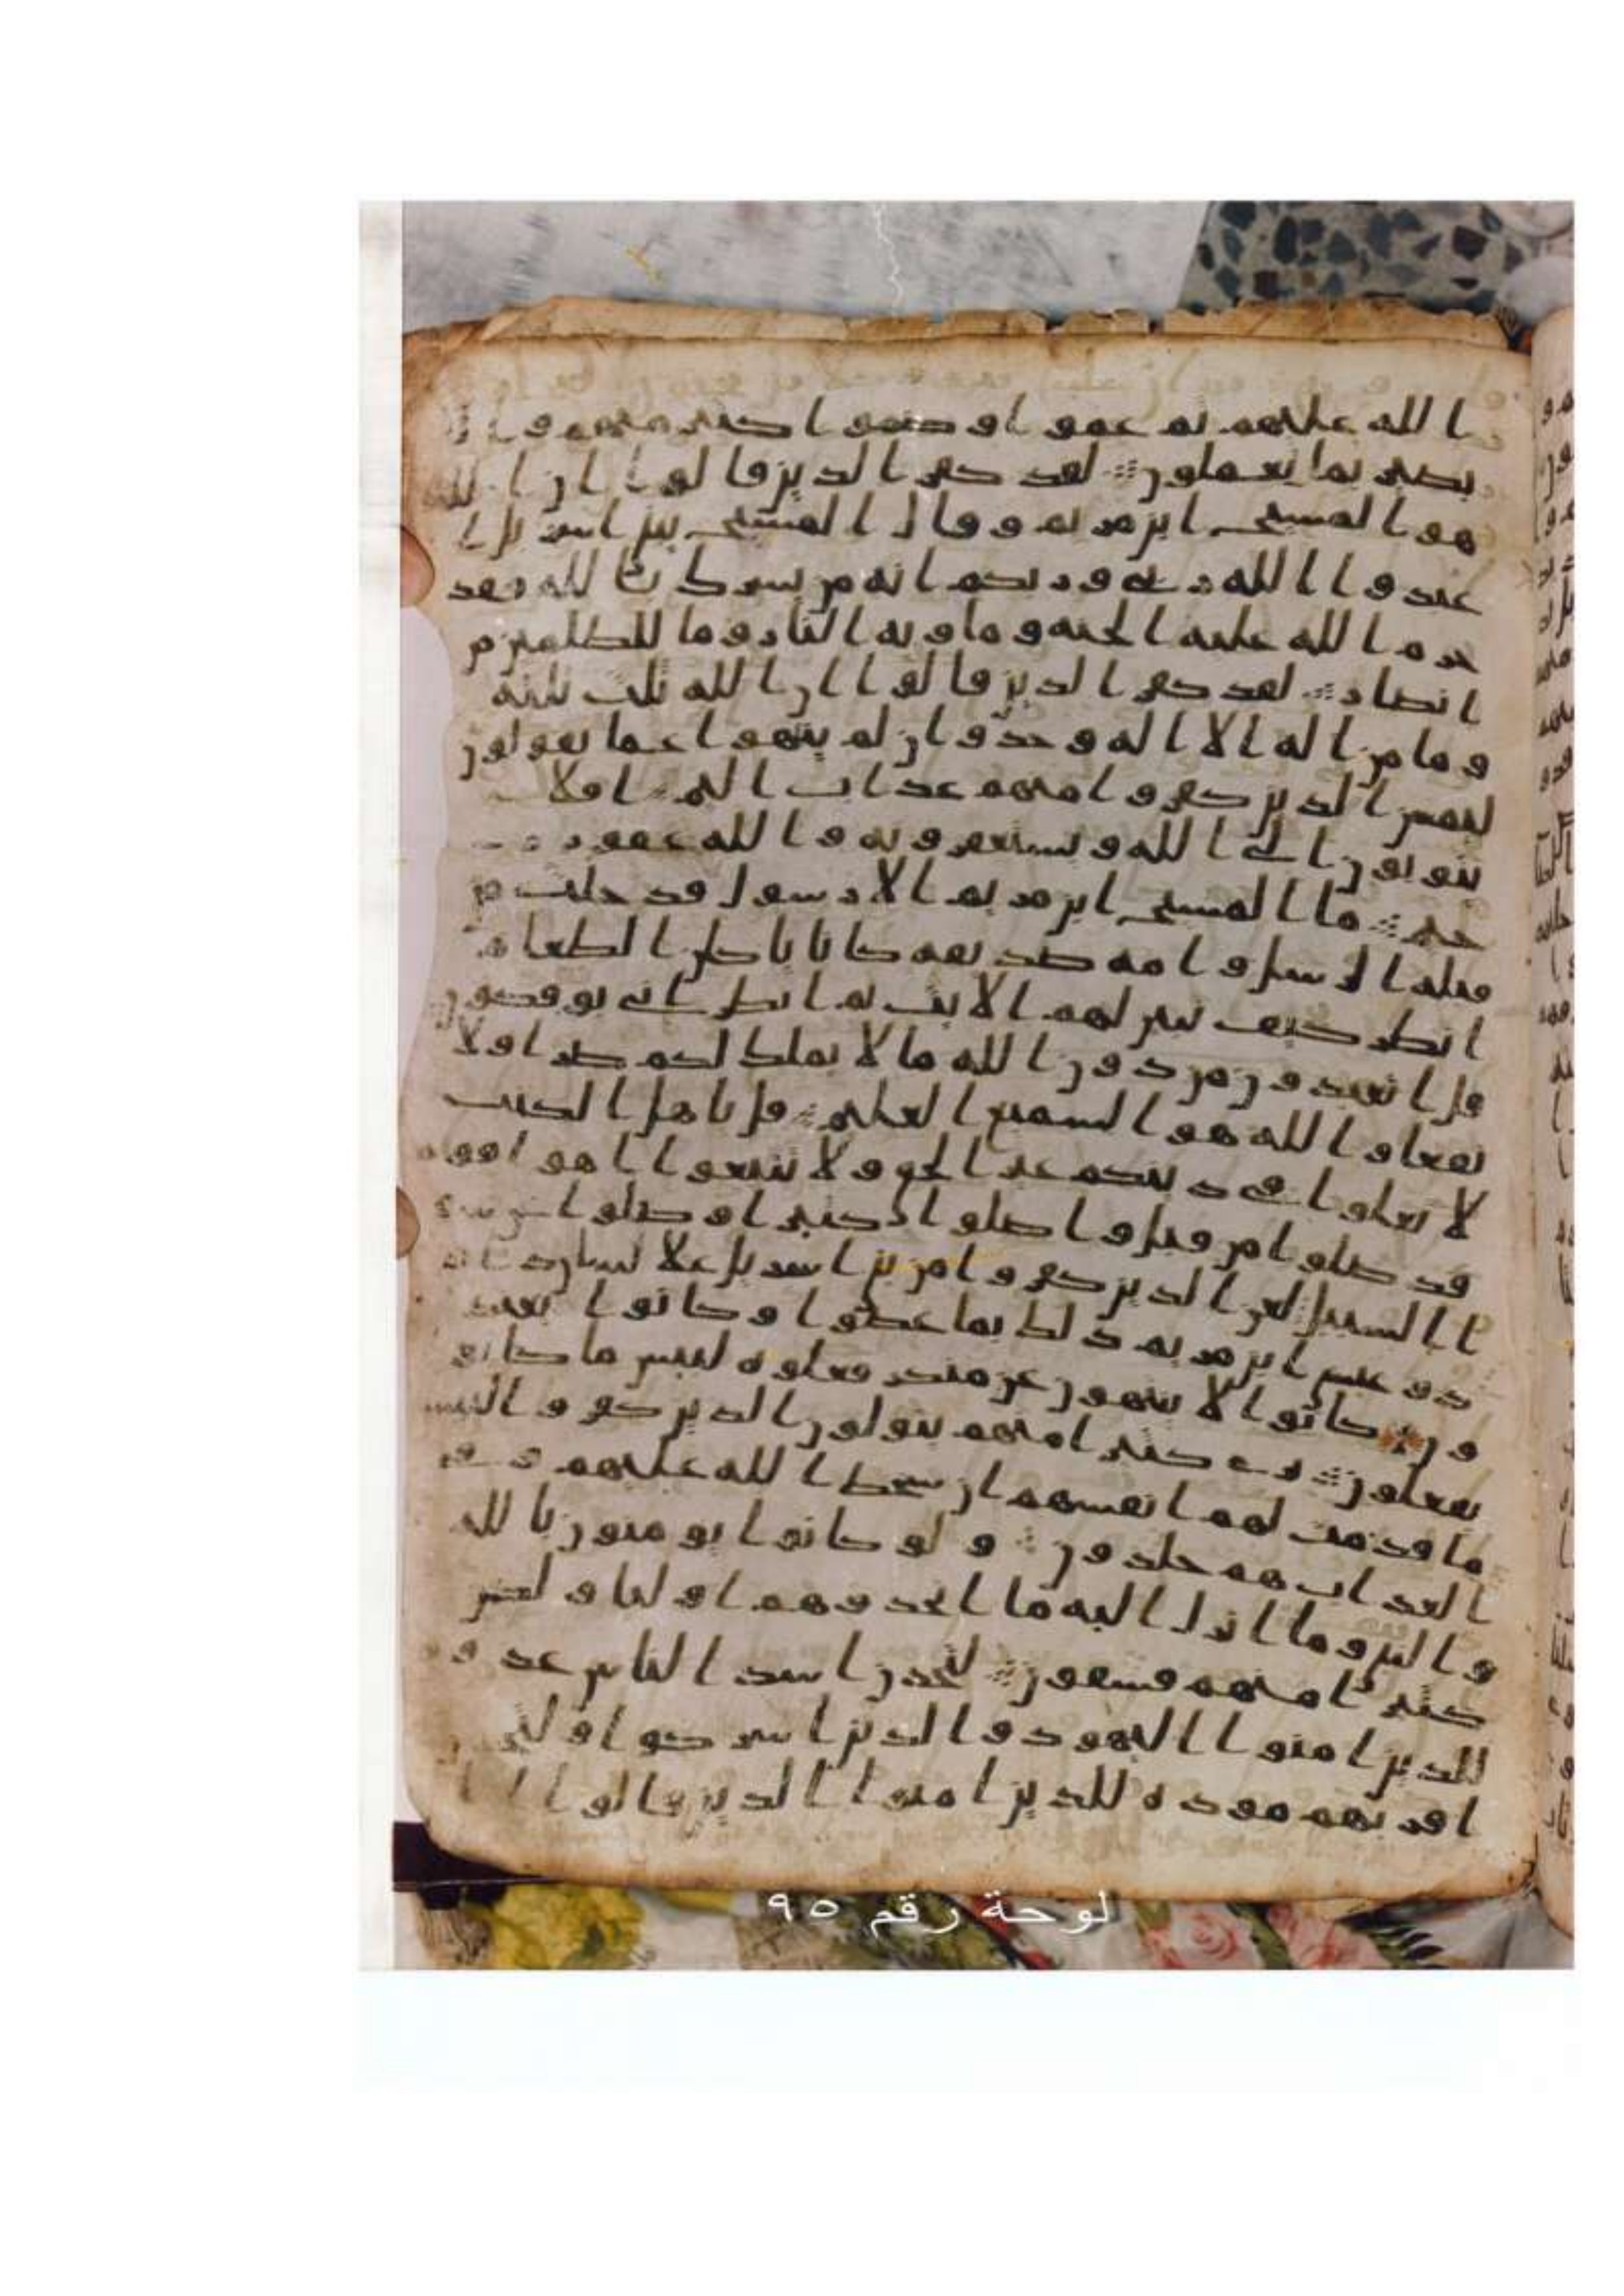 الله عليهم ثم عموا وصموا كثير منهم و
بصير بما يعملون ∴ لقد كفر الذين قالوا ان الله
هو المسيح ابن مريم وقال المسيح يبني اسريل ا
عبدوا الله ربي وربكم انه من يشرك بالله فقد
حرم الله عليه الجنه وماويه النار وما للظلمين من
انصار ∴ لقد كفر الذين قالوا ان الله ثلث ثلثه
وما من اله الا اله وحد وان لم ينتهوا عما يقولون
ليمسن الذين كفروا منهم عذاب اليم ∴ افلا
يتوبون الى الله ويستغفرونه والله غفور ر
حيم ∴ ما المسيح ابن مريم الا رسول قد خلت من
قبله الرسل وامه صديقه كانا ياكلن الطعام
انظر كيف نبين لهم الايت ثم انظر انى يوفكون
قل اتعبدون من دون الله ما لا يملك لكم ضرا ولا
نفعا والله هو السميع العليم ∴ قل ياهل الكتب
لا تغلوا في دينكم غير الحق ولا تتبعوا اهوا قوم
قد ضلوا من قبل واضلوا كثيرا وضلوا عن سو
ا السبيل لعن الذين كفروا من بني اسريل علا لسان د ا
ود وعيسى ابن مريم ذلك بما عصوا وكانوا يعتد
ون كانوا لا يتنهون عن منكر فعلوه لبيس ما كانوا
يفعلون ∴ ترى كثيرا منهم يتولون الذين كفروا لبيس
ما قدمت لهم انفسهم ان سخط الله عليهم وفي
العذاب هم خلدون ∴ ولو كانوا يومنون بالله
والنبي وما انزل اليه ما اتخذوهم اوليا ولكن
كثيرا منهم فسقون ∴ لتجدن اشد الناس عدوه
للذين امنوا اليهود والذين اشركوا ولتجدن
اقربهم موده للذين امنوا الذين قالوا
لوحة رقم ٩٥